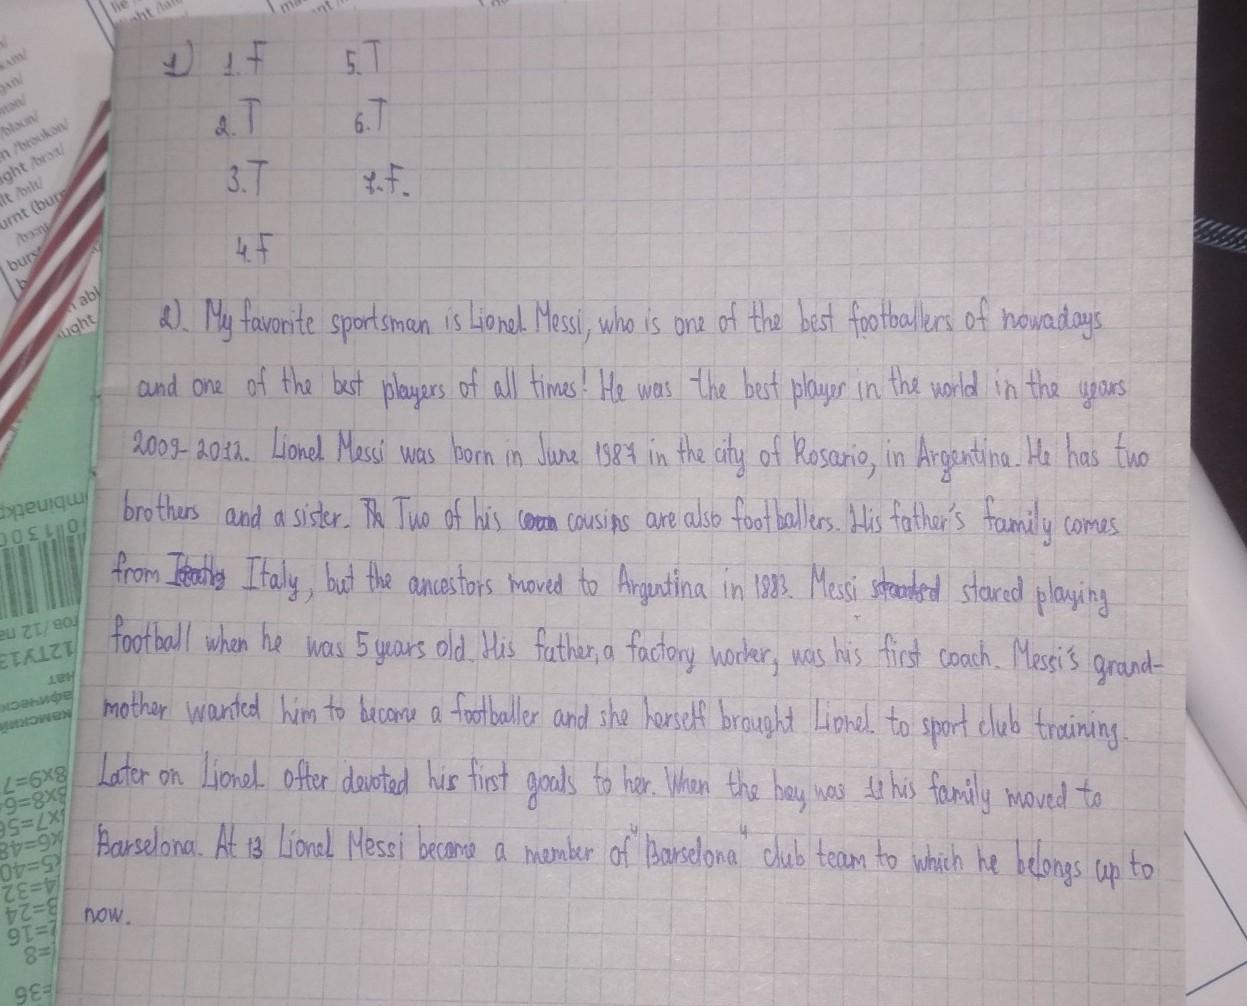 1) 1. F 5. T
2. T 6. T
3. T 7. F.
4. F
2). My favorite sportsman is Lionel Messi, who is one of the best footballers of nowadays
and one of the best players of all times! He was the best player in the world in the years
2009-2012. Lionel Messi was born in June 1987 in the city of Rosario, in Argentina. He has two
brothers and a sister. Th Two of his cousins are also footballers. His father's family comes
from Italy, but the ancestors moved to Argentina in 1883. Messi stared playing
football when he was 5 years old. His father, a factory worker, was his first coach. Messi's grand-
mother wanted him to become a footballer and she herself brought Lionel to sport club training.
Later on Lionel ofter devoted his first goals to her. When the boy was his family moved to
Barselona. At 13 Lionel Messi become a member of "Barselona" club team to which he belongs up to
now.
ught
8x9=7
8x8=6
8x7=56
8x6=48
8x5=40
8x4=32
8x3=24
=16
=8
=36